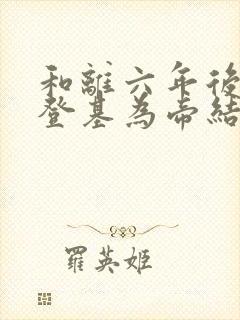 和離六年後
登基為帝結
羅英姬